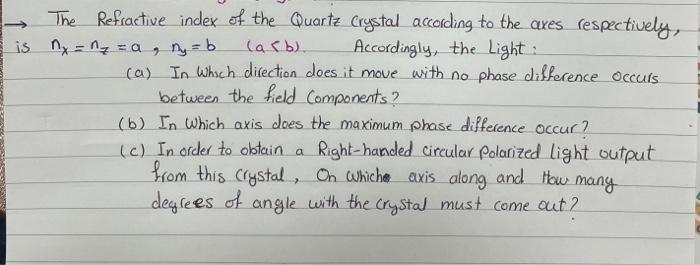 → The Refractive index of the Quartz Crystal according to the axes respectively,
is n_x = n_z = a , n_y = b (a < b). Accordingly, the Light :
(a) In Which direction does it move with no phase difference occurs
between the field Components?
(b) In Which axis does the maximum phase difference occur?
(c) In order to obtain a Right-handed circular Polarized Light output
from this Crystal, On Which axis along and How many
degrees of angle with the crystal must come out?